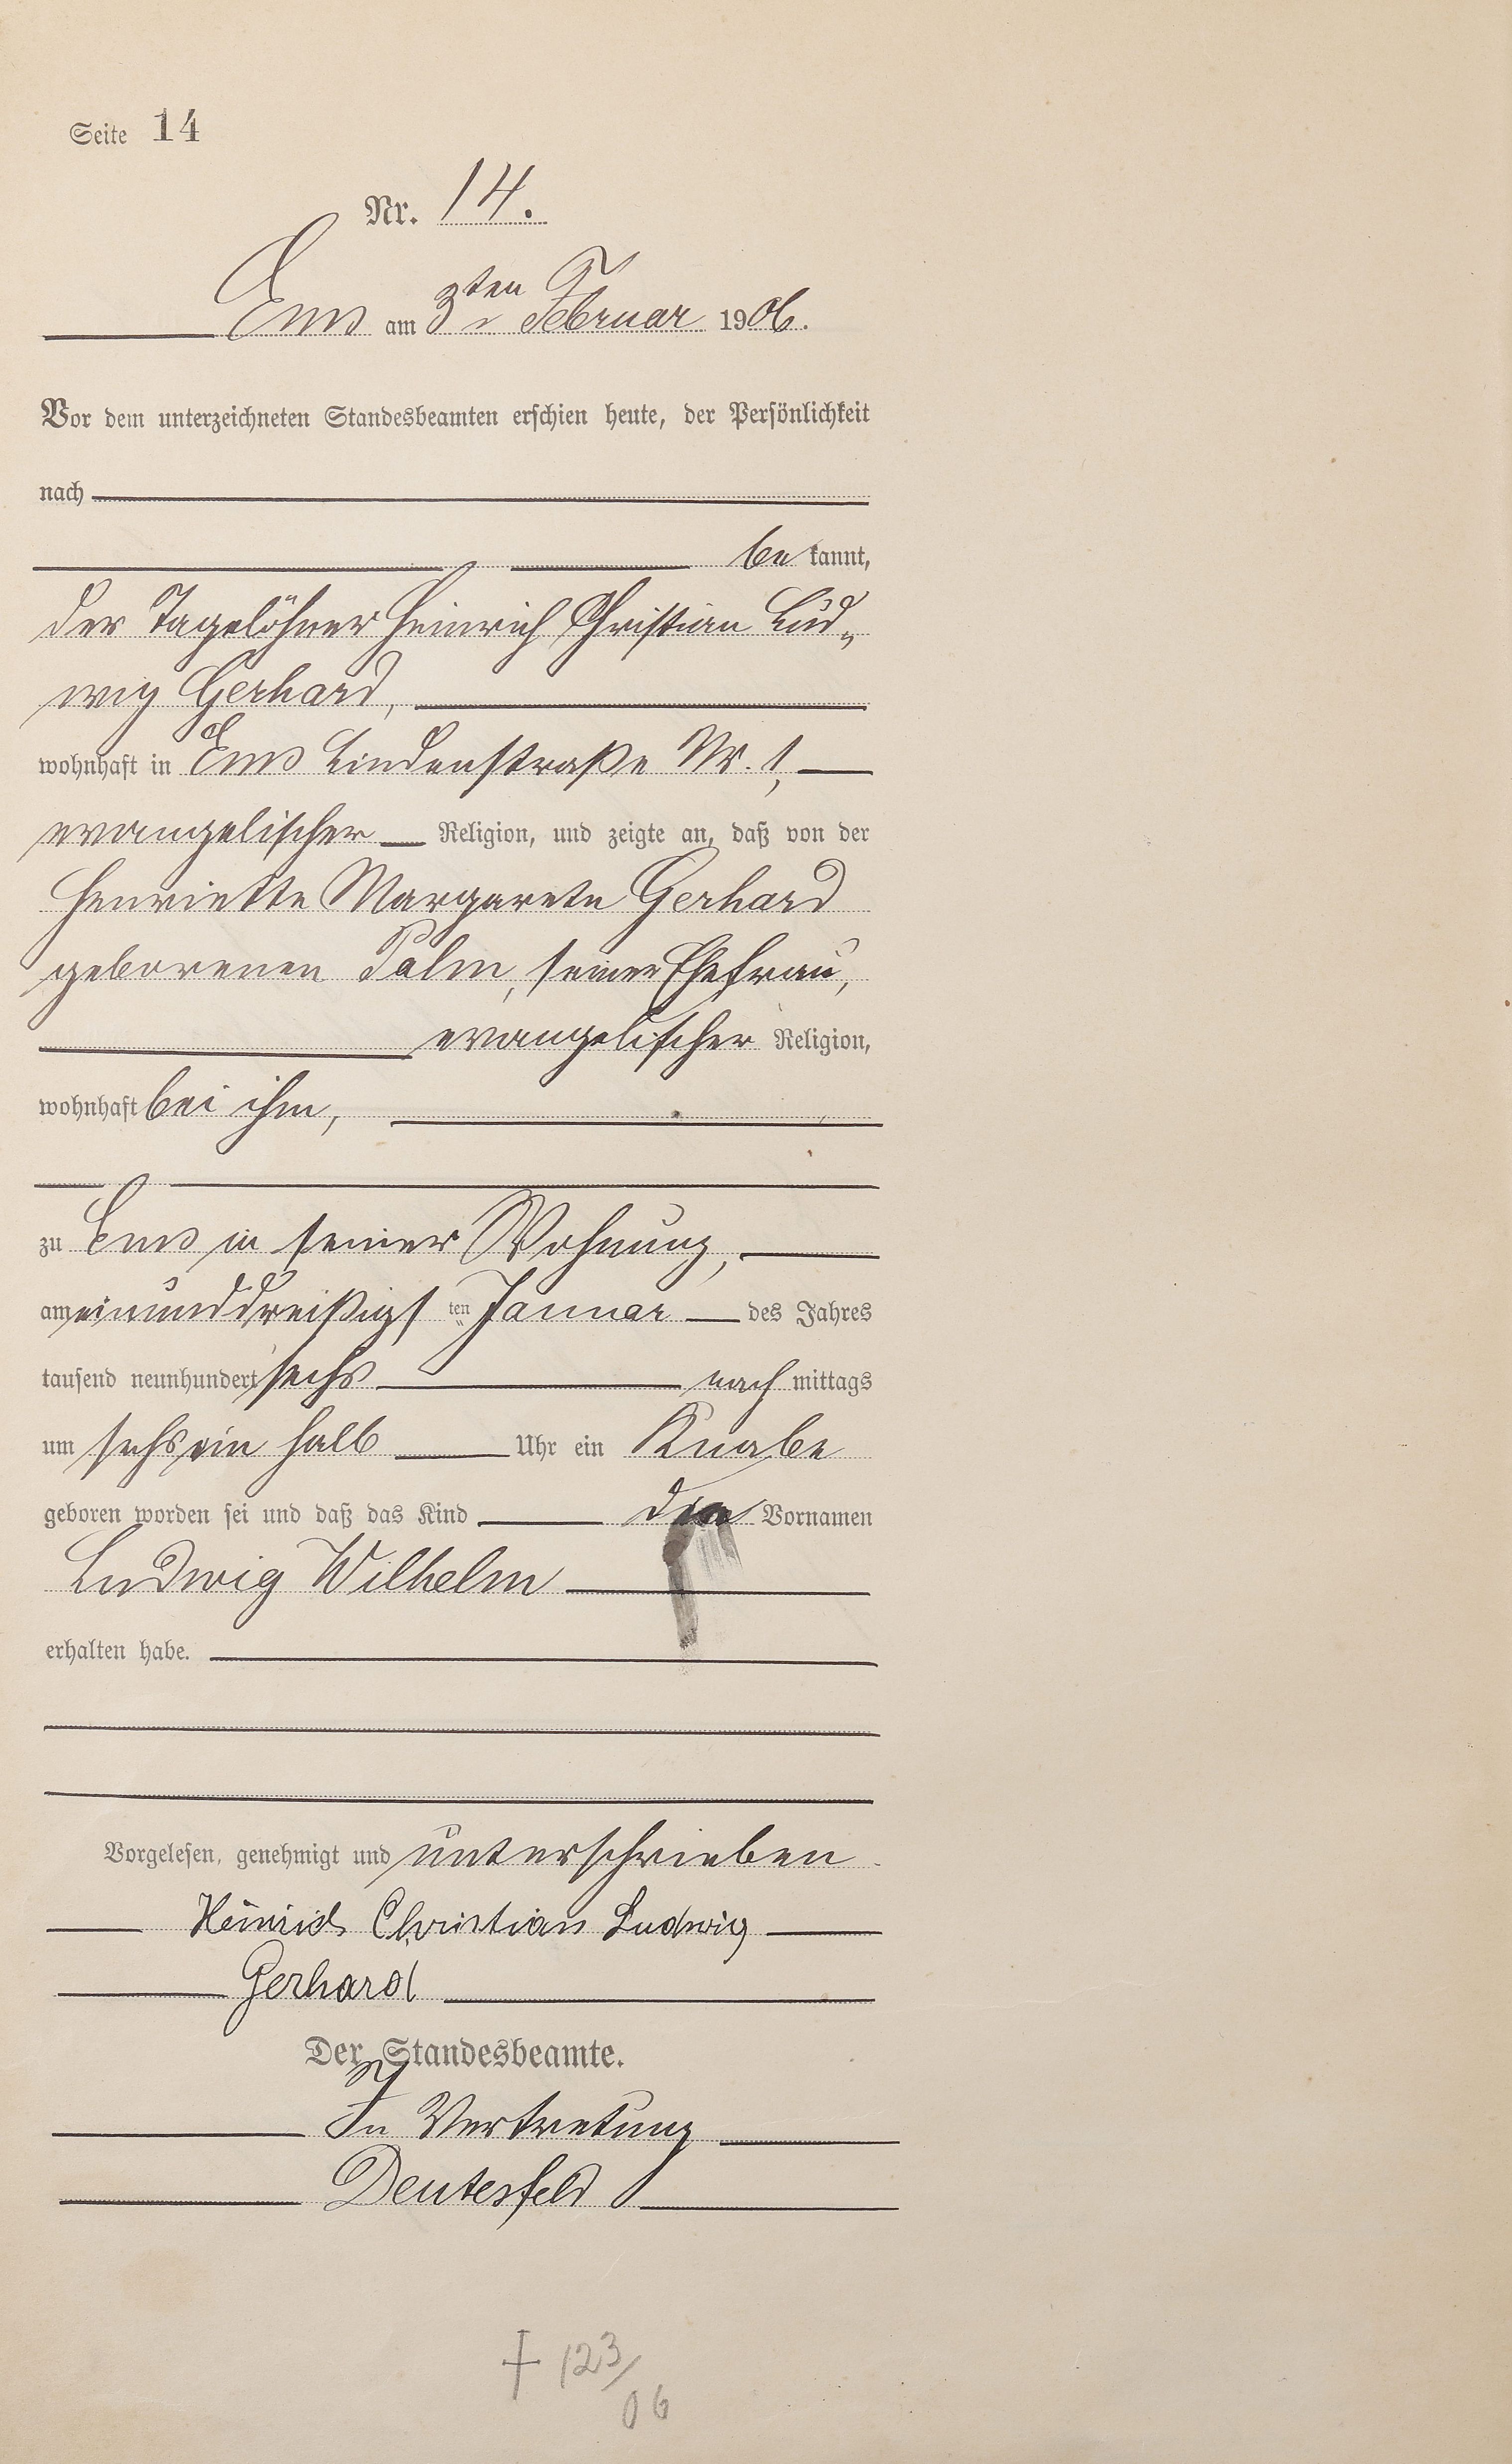 Seite 14
Nr. 14.
Ems am 3ten Februar 1906.
Vor dem unterzeichneten Standesbeamten erschien heute, der Persönlichkeit
nach
be kannt,
der Tagelöhner Heinrich Christian Lud„
wig Gerhard,
wohnhaft in Ems Lindenstraße Nr. 1,
evangelischer Religion, und zeigte an, daß von der
Henriette Margarete Gerhard
geborenen Palm, seiner Ehefrau,
evangelischer Religion,
wohnhaft bei ihm,
zu Ems in seiner Wohnung,
am einunddreißigsten Januar des Jahres
tausend neunhundert sechs nach mittags
um sechs ein halb Uhr ein Knabe
geboren worden sei und daß das Kind die Vornamen
Ludwig Wilhelm
erhalten habe.
Vorgelesen, genehmigt und unterschrieben
Heinrich Christian Ludwig
Gerhard
Der Standesbeamte.
In Vertretung
Deutesfeld
† 123/
06